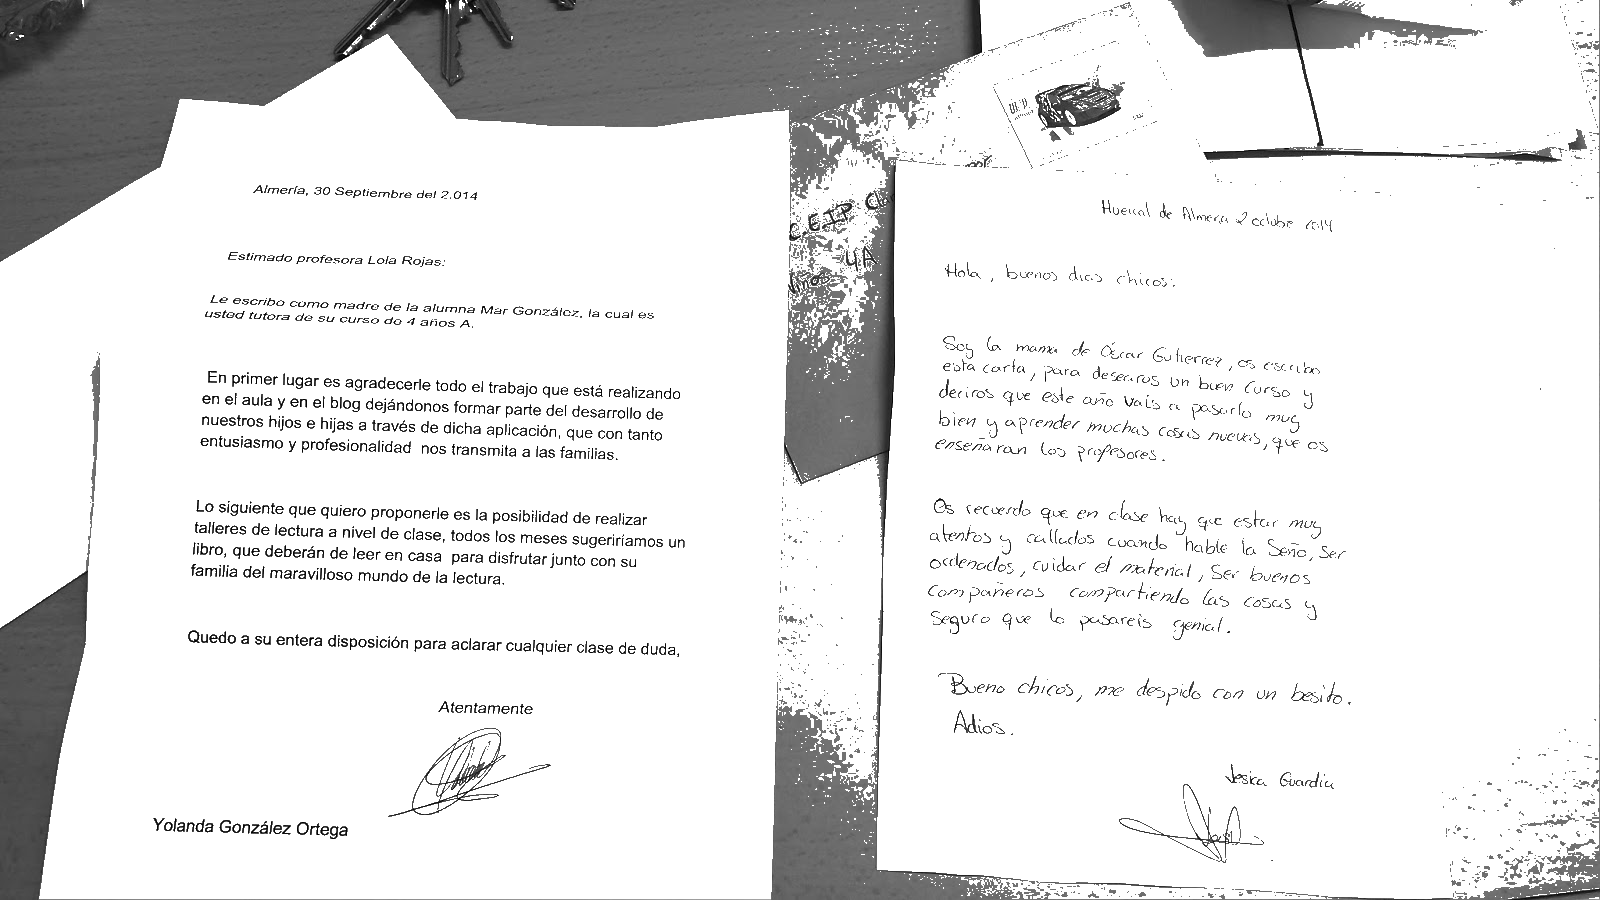 Almería, 30 Septiembre del 2.014
Estimado profesora Lola Rojas:
Le escribo como madre de la alumna Mar González, la cual es
usted tutora de su curso de 4 años A.
En primer lugar es agradecerle todo el trabajo que está realizando
en el aula y en el blog dejándonos formar parte del desarrollo de
nuestros hijos e hijas a través de dicha aplicación, que con tanto
entusiasmo y profesionalidad nos transmita a las familias.
Lo siguiente que quiero proponerle es la posibilidad de realizar
talleres de lectura a nivel de clase, todos los meses sugeriríamos un
libro, que deberán de leer en casa para disfrutar junto con su
familia del maravilloso mundo de la lectura.
Quedo a su entera disposición para aclarar cualquier clase de duda,
Atentamente
Yolanda González Ortega
C.E.I.P
4A
Niños
Huercal de Almeria 2 octubre 2014
Hola, buenos dias chicos:
Soy la mama de Óscar Gutierrez, os escribo
esta carta, para desearos un buen curso y
deciros que este año vais a pasarlo muy
bien y aprender muchas cosas nuevas, que os
enseñaran los profesores.
Os recuerdo que en clase hay que estar muy
atentos y callados cuando hable la Seño, Ser
ordenados, cuidar el material, Ser buenos
compañeros compartiendo las cosas y
Seguro que lo pasareis genial.
Bueno chicos, me despido con un besito.
Adios.
Jesica Guardia